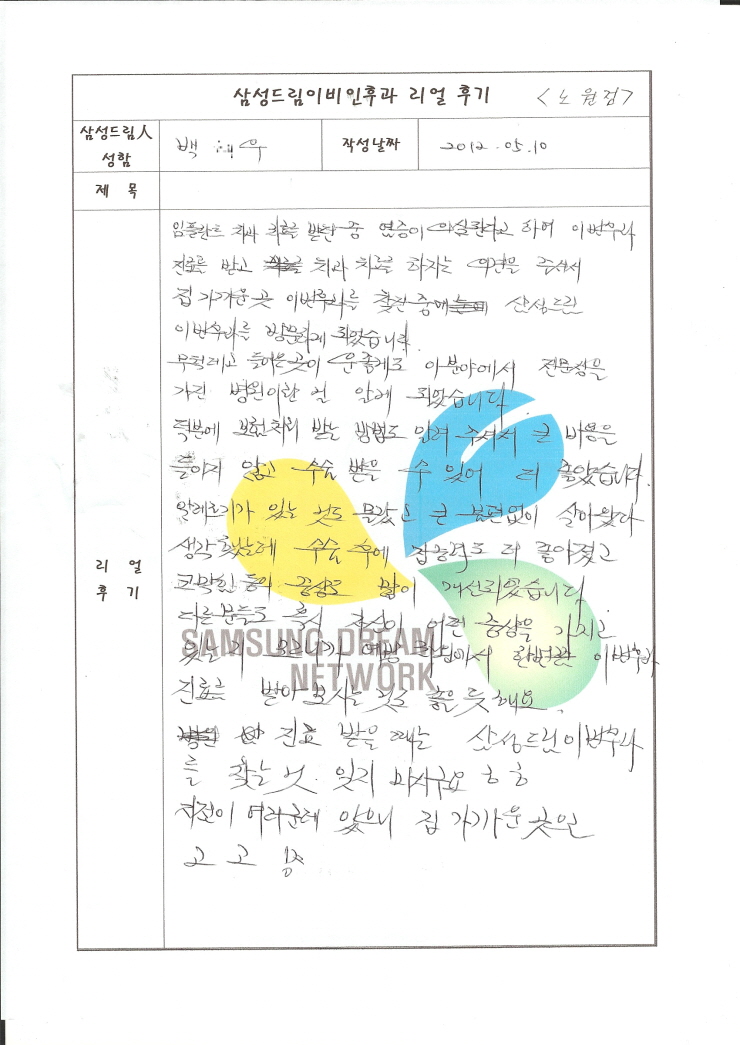 삼성드림이비인후과 리얼 후기 <노원점>
삼성드림人 성함 백 우 작성날짜 2012.05.10
제 목
리 얼 후 기
임플란트 치과 치료를 받던 중 염증이 의심된다고 하여 이빈후과
진료를 받고 치과 치료를 하자는 의견을 주셔서
집 가까운 곳 이빈후과를 찾던 중에 삼성드림
이빈후과를 방문하게 되었습니다.
무턱대고 들어온 곳이 운좋게도 이분야에서 전문성을
가진 병원이란 걸 알게 되었습니다
덕분에 보험처리 받는 방법도 알려 주셔서 큰 비용을
들이지 않고 수술 받을 수 있어 더 좋았습니다.
알레르기가 있는 것도 몰랐고 큰 불편없이 살아왔다
생각했는데 수술 후에 집중력도 더 좋아졌고
코막힘 등의 증상도 많이 개선되었습니다
다른 분들도 혹시 자신이 어떤 증상을 가지고
있는지 모르니가 예방 차원에서 한번쯤 이빈후과
진료를 받아 보시는 것도 좋을 듯 해요.
진료 받을 때는 삼성드림이빈후과
를 찾는 것. 잊지 마시구요 ㅎㅎ
지점이 여러군데 있으니 집 가까운 곳으로
고고씽
SAMSUNG DREAM
NETWORK